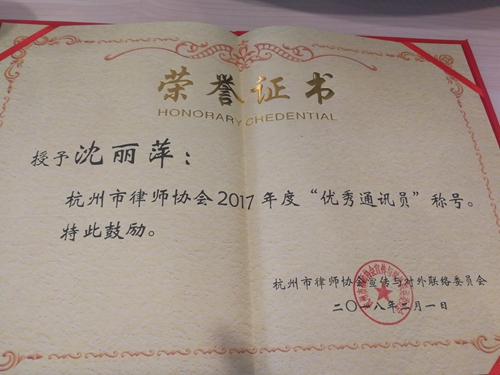 荣誉证书
HONORARY CHEDENTIAL
授予沈丽萍：
杭州市律师协会2017年度“优秀通讯员”称号。
特此鼓励。
杭州市律师协会宣传与对外联络委员会
二〇一八年二月一日